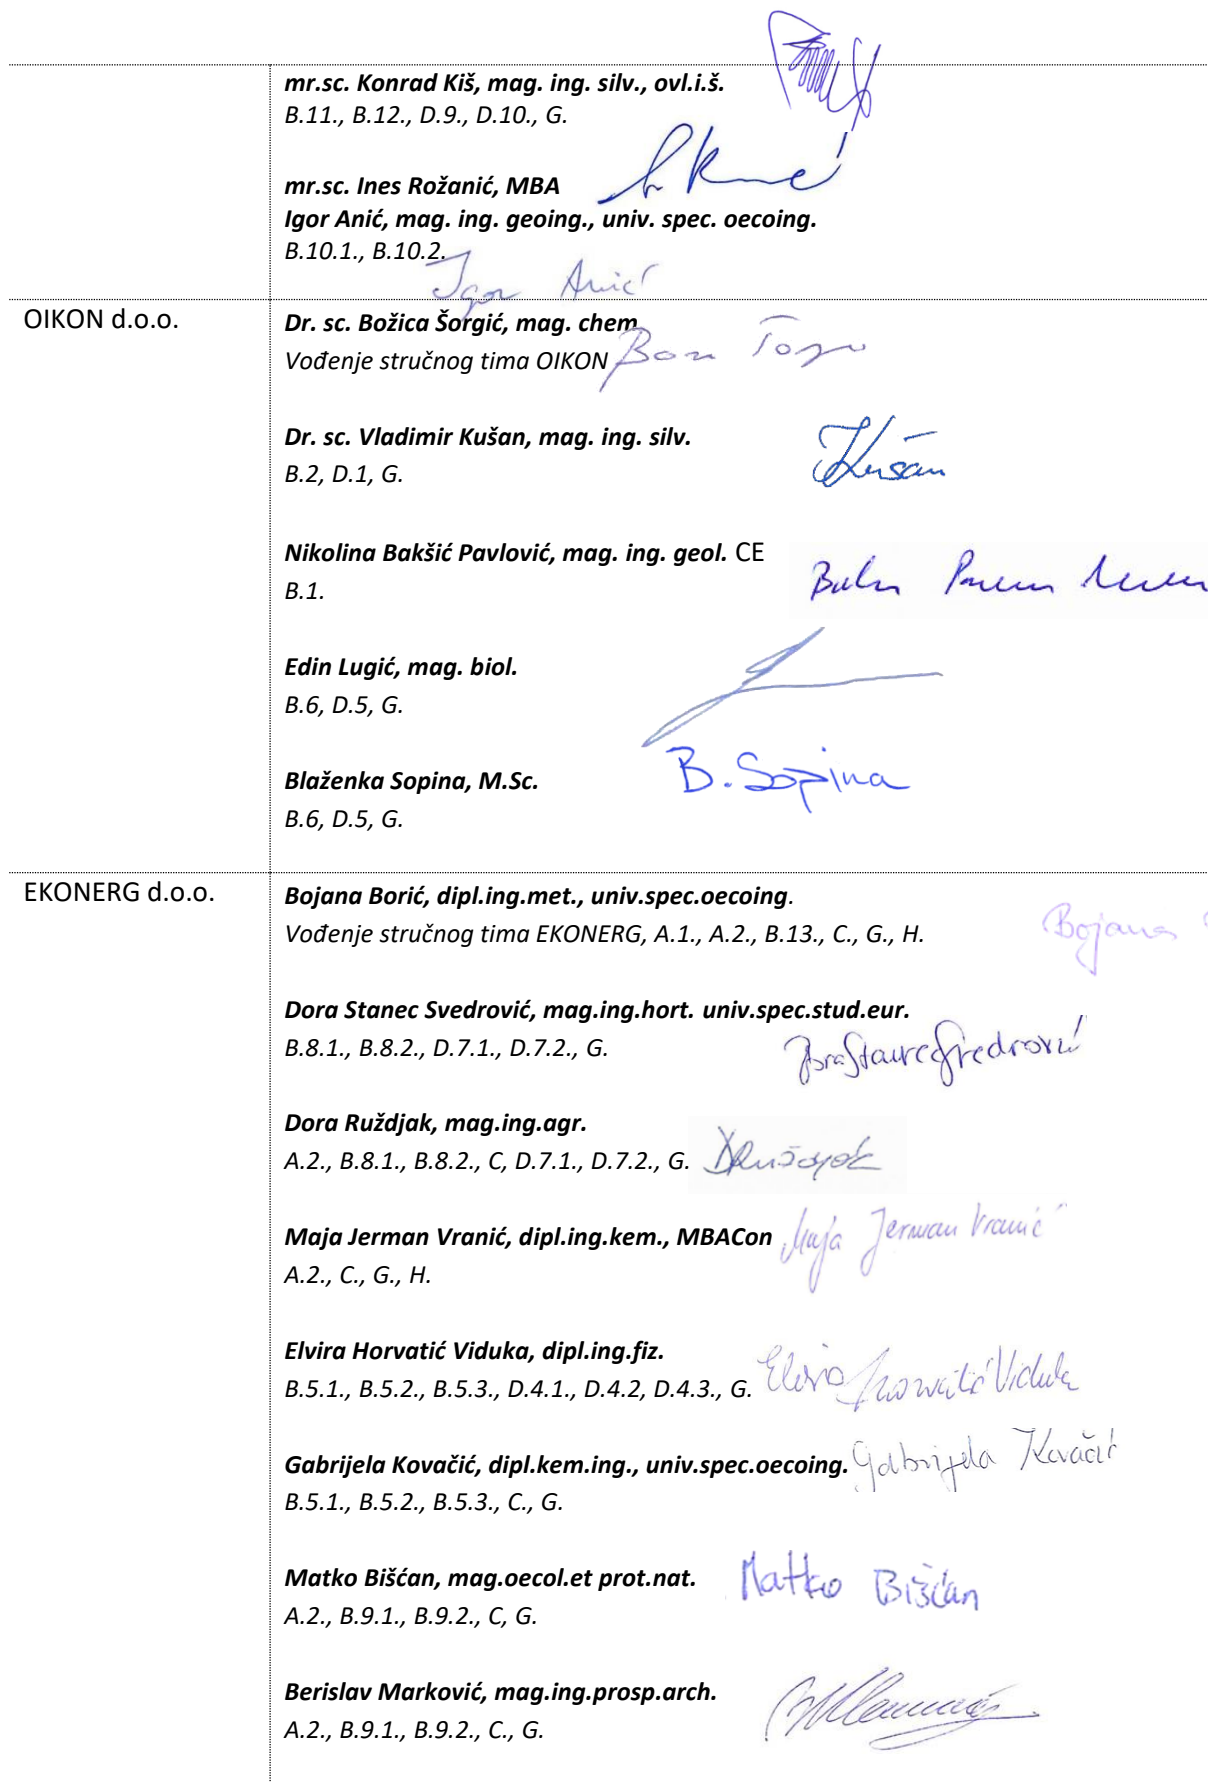 mr.sc. Konrad Kiš, mag. ing. silv., ovl.i.š.
B.11., B.12., D.9., D.10., G.
mr.sc. Ines Rožanić, MBA
Igor Anić, mag. ing. geoing., univ. spec. oecoing.
B.10.1., B.10.2.
Igor Anić
OIKON d.o.o.
Dr. sc. Božica Šorgić, mag. chem
Vođenje stručnog tima OIKON
Dr. sc. Vladimir Kušan, mag. ing. silv.
Kušan
B.2, D.1, G.
Nikolina Bakšić Pavlović, mag. ing. geol. CE
B.1.
Edin Lugić, mag. biol.
B.6, D.5, G.
Blaženka Sopina, M.Sc.
B. Sopina
B.6, D.5, G.
EKONERG d.o.o.
Bojana Borić, dipl.ing.met., univ.spec.oecoing.
Vođenje stručnog tima EKONERG, A.1., A.2., B.13., C., G., H.
Bojana
Dora Stanec Svedrović, mag.ing.hort. univ.spec.stud.eur.
B.8.1., B.8.2., D.7.1., D.7.2., G.
Dora Ruždjak, mag.ing.agr.
A.2., B.8.1., B.8.2., C, D.7.1., D.7.2., G.
Maja Jerman Vranić, dipl.ing.kem., MBACon
Maja Jerman Vranić
A.2., C., G., H.
Elvira Horvatić Viduka, dipl.ing.fiz.
B.5.1., B.5.2., B.5.3., D.4.1., D.4.2, D.4.3., G.
Elvira Horvatić Viduka
Gabrijela Kovačić, dipl.kem.ing., univ.spec.oecoing.
Gabrijela Kovačić
B.5.1., B.5.2., B.5.3., C., G.
Matko Bišćan, mag.oecol.et prot.nat.
Matko Bišćan
A.2., B.9.1., B.9.2., C, G.
Berislav Marković, mag.ing.prosp.arch.
A.2., B.9.1., B.9.2., C., G.